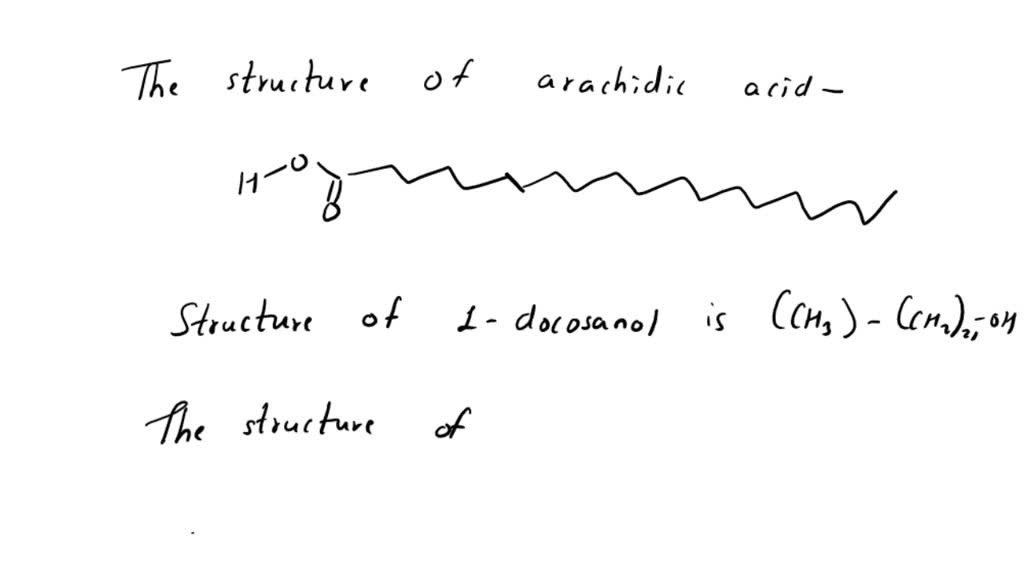 The structure of arachidic acid-
H O
O
Structure of 1-docosanol is (CH3)-(CH2)21-OH
The structure of